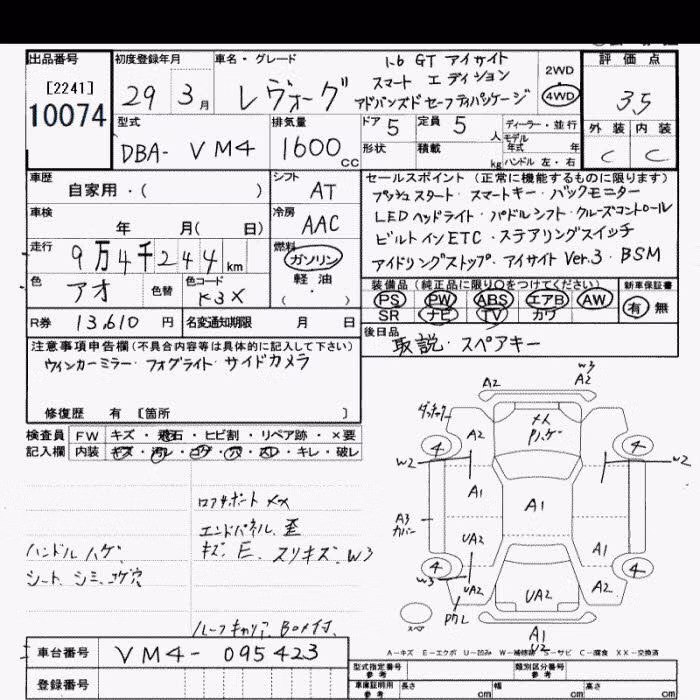 出品番号 初度登録年月 車名・グレード 1.6 GT アイサイト 評価点
[2241] 29 3月 レヴォーグ スマート エディション 2WD 3.5
10074 アドバンスド セーフティパッケージ 4WD
型式 排気量 ドア 5 定員 5 人 ディーラー・並行 外装 内装
DBA- VM4 1600 cc 形状 積載 kg モデル年式 年 ハンドル 左・右 C C
車歴 自家用・( ) シフト AT
セールスポイント(正常に機能するものに限ります)
プッシュスタート・スマートキー・バックモニター
車検 年 月( 日) 冷房 AAC
LEDヘッドライト・パドルシフト・クルーズコントロール
ビルトインETC・ステアリングスイッチ
走行 9万4千244km 燃料 ガソリン 軽油・( )
アイドリングストップ・アイサイト Ver.3・BSM
色 アオ 色替 色コード K3X
装備品(純正品に限り○をつけてください) 新車保証書
PS PW ABS エアB AW 有 無
SR ナビ TV カワ
R券 13,610 円 名変通知期限 月 日
後日品 取説・スペアキー
注意事項申告欄(不具合内容等は具体的に記入して下さい)
ウィンカーミラー・フォグライト・サイドカメラ
修復歴 有 [箇所 ]
検査員 FW キズ・飛石・ヒビ割・リペア跡・×要
記入欄 内装 キズ・汚レ・コゲ・穴・スレ・キレ・破レ
W3
A2 A2
A2 メハ
4 4
W2 W2
A1 A1
A3 カバー
UA2 A1
4 4
W3 UA2 UA2 A2
スペア A1
U2
ロアサポート XX
エンドパネル 歪
キズ、E、スリキズ、W3
ハンドル ハゲ
シート、シミ、コゲ穴
ルーフキャリア、BOX付
A-キズ E-エクボ U-凹み W-補修跡 S-サビ C-腐食 XX-交換済
車台番号 VM4-095423
登録番号
型式指定番号 参考 類別区分番号 参考
車庫証明用 参考 長さ cm 幅 cm 高さ cm